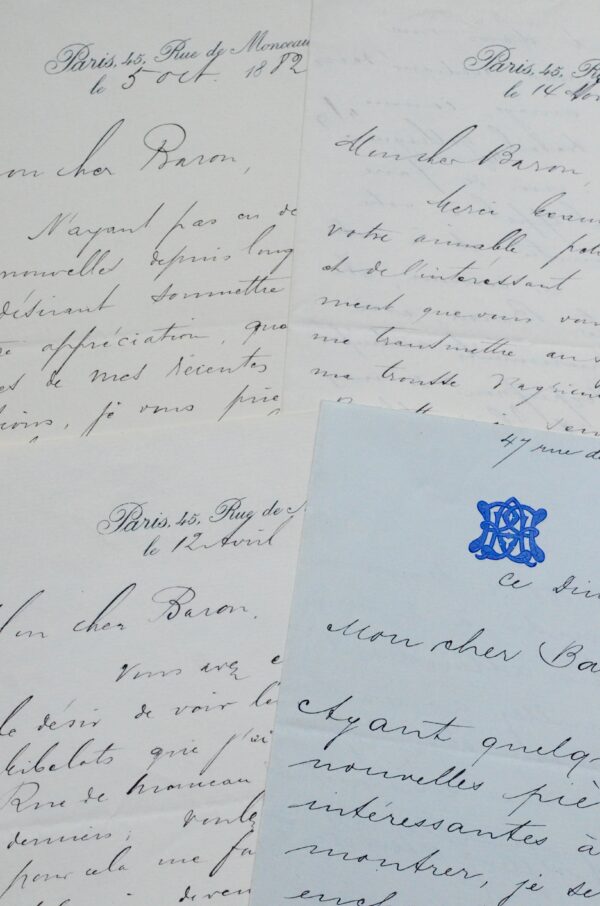 Paris, 45, Rue de Monceau
le 5 oct. 1882
on cher Baron,
N'ayant pas eu de
nouvelles depuis long
désirant soumettre
re appréciation, que
es de mes récentes
tions, je vous prie
Paris, 45, R
le 14 No
Mon cher Baron,
Merci beau
votre aimable
et de l'intéressant
ment que vous
me transmettre au
ma trousse
Paris, 45, Rue de M
le 12 Avril
on cher Baron,
Vous avez e
le désir de voir les
bibelots que j'ai
Rue de Monceau
derniers;
pour cela me fa
deven
47 rue de
Ce Dim
Mon cher Ba
Ayant quelq
nouvelles piè
intéressantes à
montrer, je se